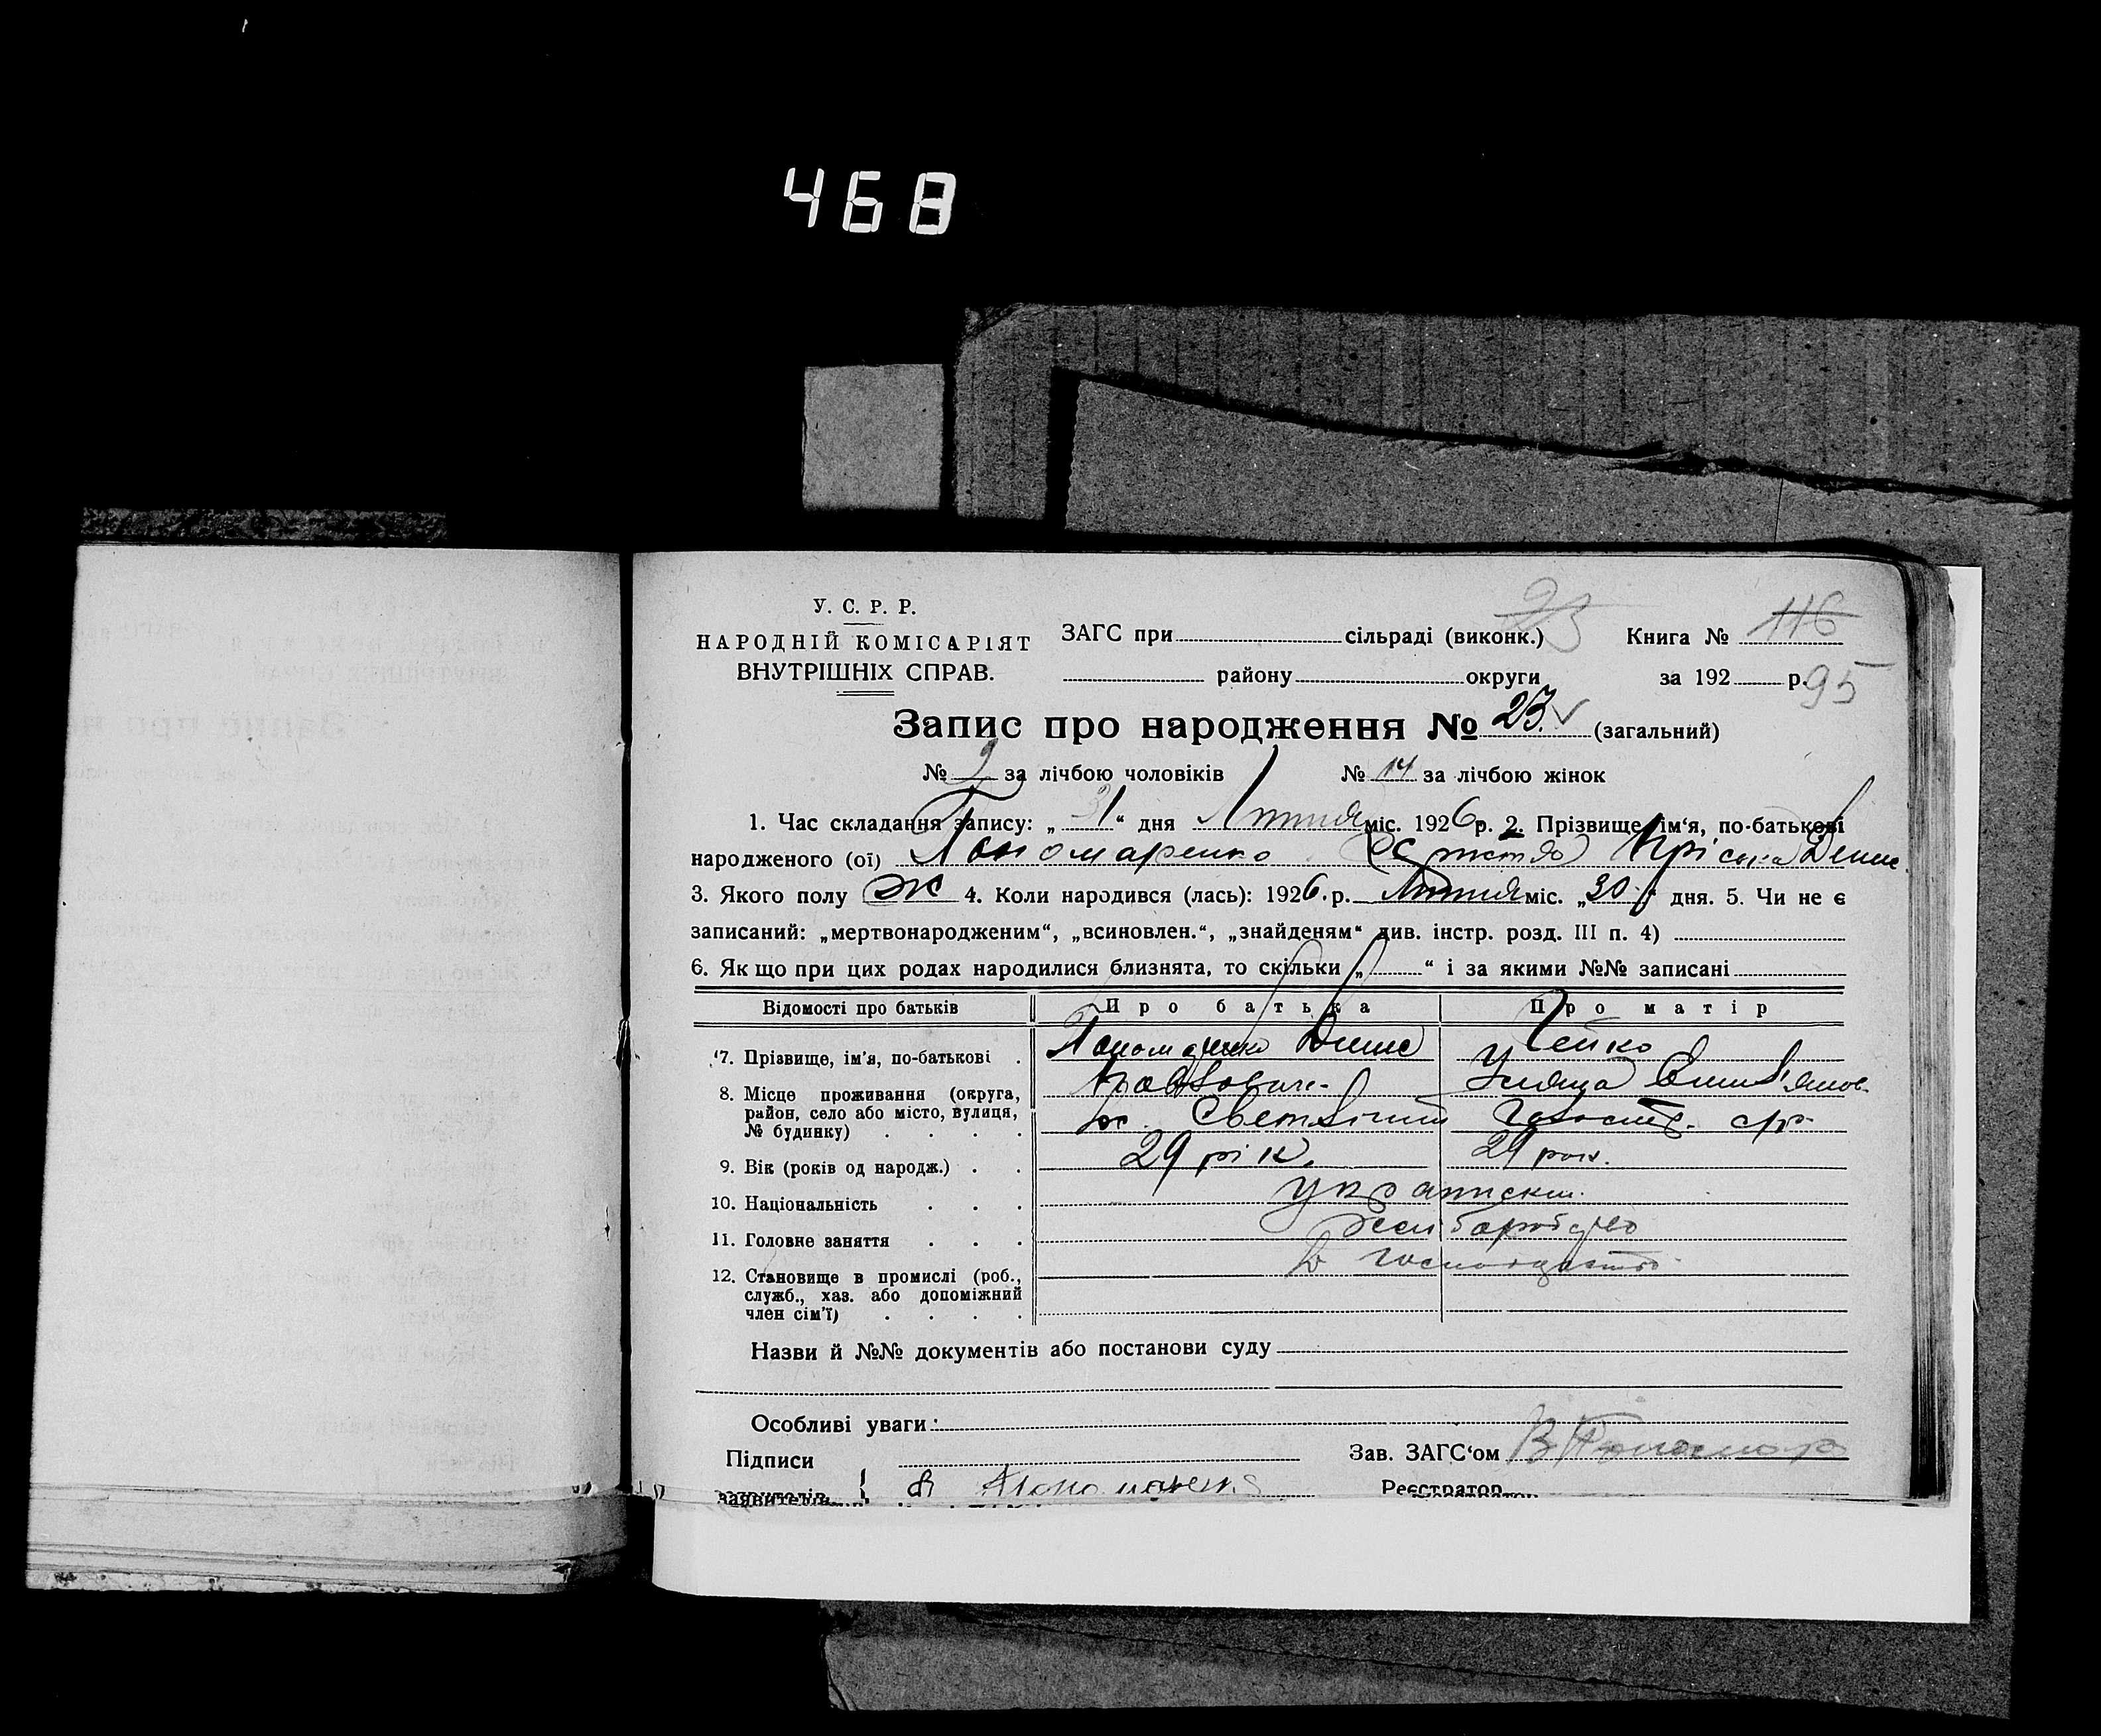 468
У. С. Р. Р.
НАРОДНІЙ КОМІСАРІЯТ
ВНУТРІШНІХ СПРАВ.
ЗАГС при сільраді (виконк.) 23 Книга № 116
району округи за 192 р. 95
Запис про народження № 23 (загальний)
№ 9 за лічбою чоловіків № 14 за лічбою жінок
1. Час складання запису: „31“ дня Липня міс. 1926 р. 2. Прізвище, ім‘я, по-батькові
народженого (ої) Пономаренко Пріська Денис
3. Якого полу ж 4. Коли народився (лась): 1926. р. Липня міс. „30“ дня. 5. Чи не є
записаний: „мертвонародженим“, „всиновлен.“, „знайденям“ див. інстр. розд. III п. 4)
6. Як що при цих родах народилися близнята, то скільки „ “ і за якими №№ записані
Відомості про батьків Про батька Про матір
7. Прізвище, ім‘я, по-батькові Пономаренко Денис Чейко
Павлович Уляща
8. Місце проживання (округа,
район, село або місто, вулиця,
№ будинку)
9. Вік (років од народж.) 29 рік. 29 рок.
10. Національність
11. Головне заняття
12. Становище в промислі (роб.,
служб., хаз. або допоміжний
член сім‘ї)
Назви й №№ документів або постанови суду
Особливі уваги:
Підписи Зав. ЗАГС‘ом В Пономар
заявителів Пономаренко Реєстратор